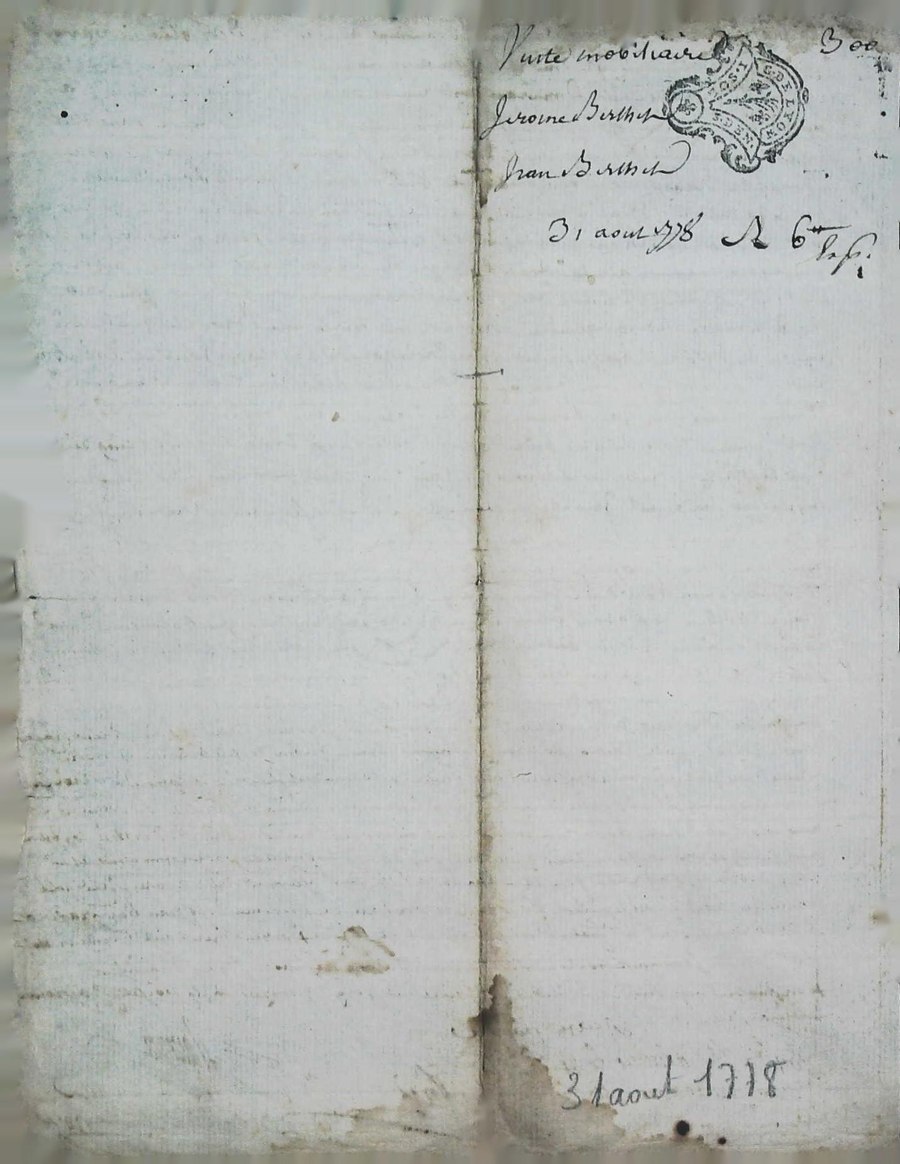 Vente mobiliaire 300
Jerome Berthet
G. DE LYON
Jean Berthet
31 aout 1778 R 6tt
31 aout 1778